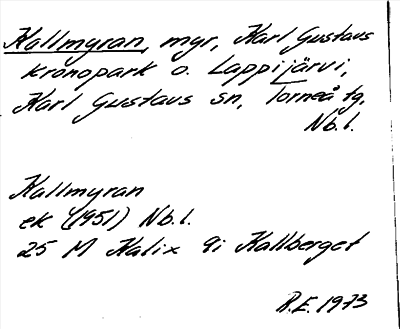 Kallmyran, myr, Karl Gustavs
kronopark o. Lappijärvi,
Karl Gustavs sn, Torneå tg,
Nb.l.
Kallmyran
ek (1951) Nb.l.
25 M Kalix 9i Kallberget
R.E. 1973